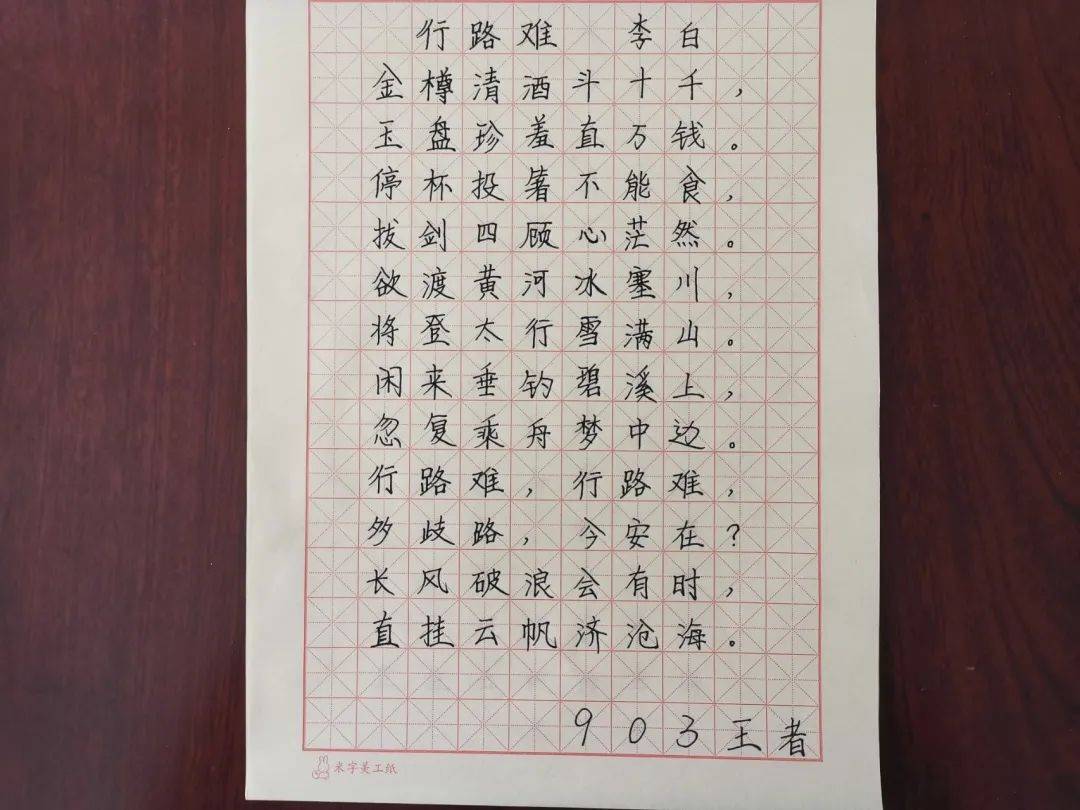 行路难 李白
金樽清酒斗十千，
玉盘珍羞直万钱。
停杯投箸不能食，
拔剑四顾心茫然。
欲渡黄河冰塞川，
将登太行雪满山。
闲来垂钓碧溪上，
忽复乘舟梦中边。
行路难，行路难，
多歧路，今安在？
长风破浪会有时，
直挂云帆济沧海。
903王者
米字美工纸